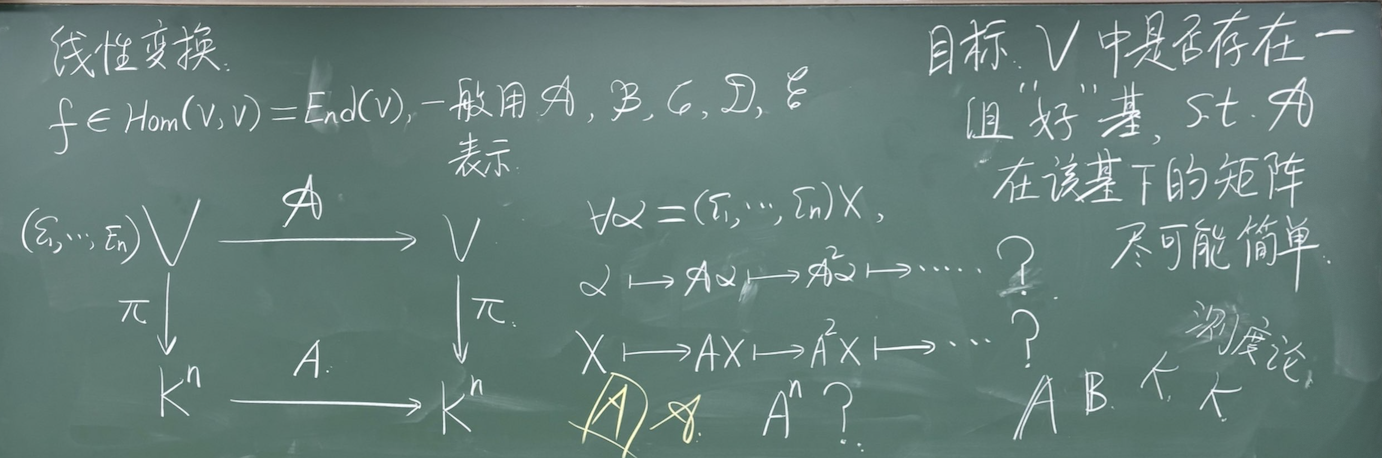 线性变换.
f ∈ Hom(V,V) = End(V), 一般用 𝒜, ℬ, 𝒞, 𝒟, ℰ
表示.
(ε₁,…,εₙ) V ⟶ V
𝒜
π π.
Kⁿ ⟶ Kⁿ
A.
∀α = (ε₁,…,εₙ)X,
α ⟼ 𝒜α ⟼ 𝒜²α ⟼ …… ?
X ⟼ AX ⟼ A²X ⟼ … ?
A 𝒜. Aⁿ ?
目标. V 中是否存在一
组 "好" 基, s.t. 𝒜
在该基下的矩阵
尽可能简单.
测度论.
A B.